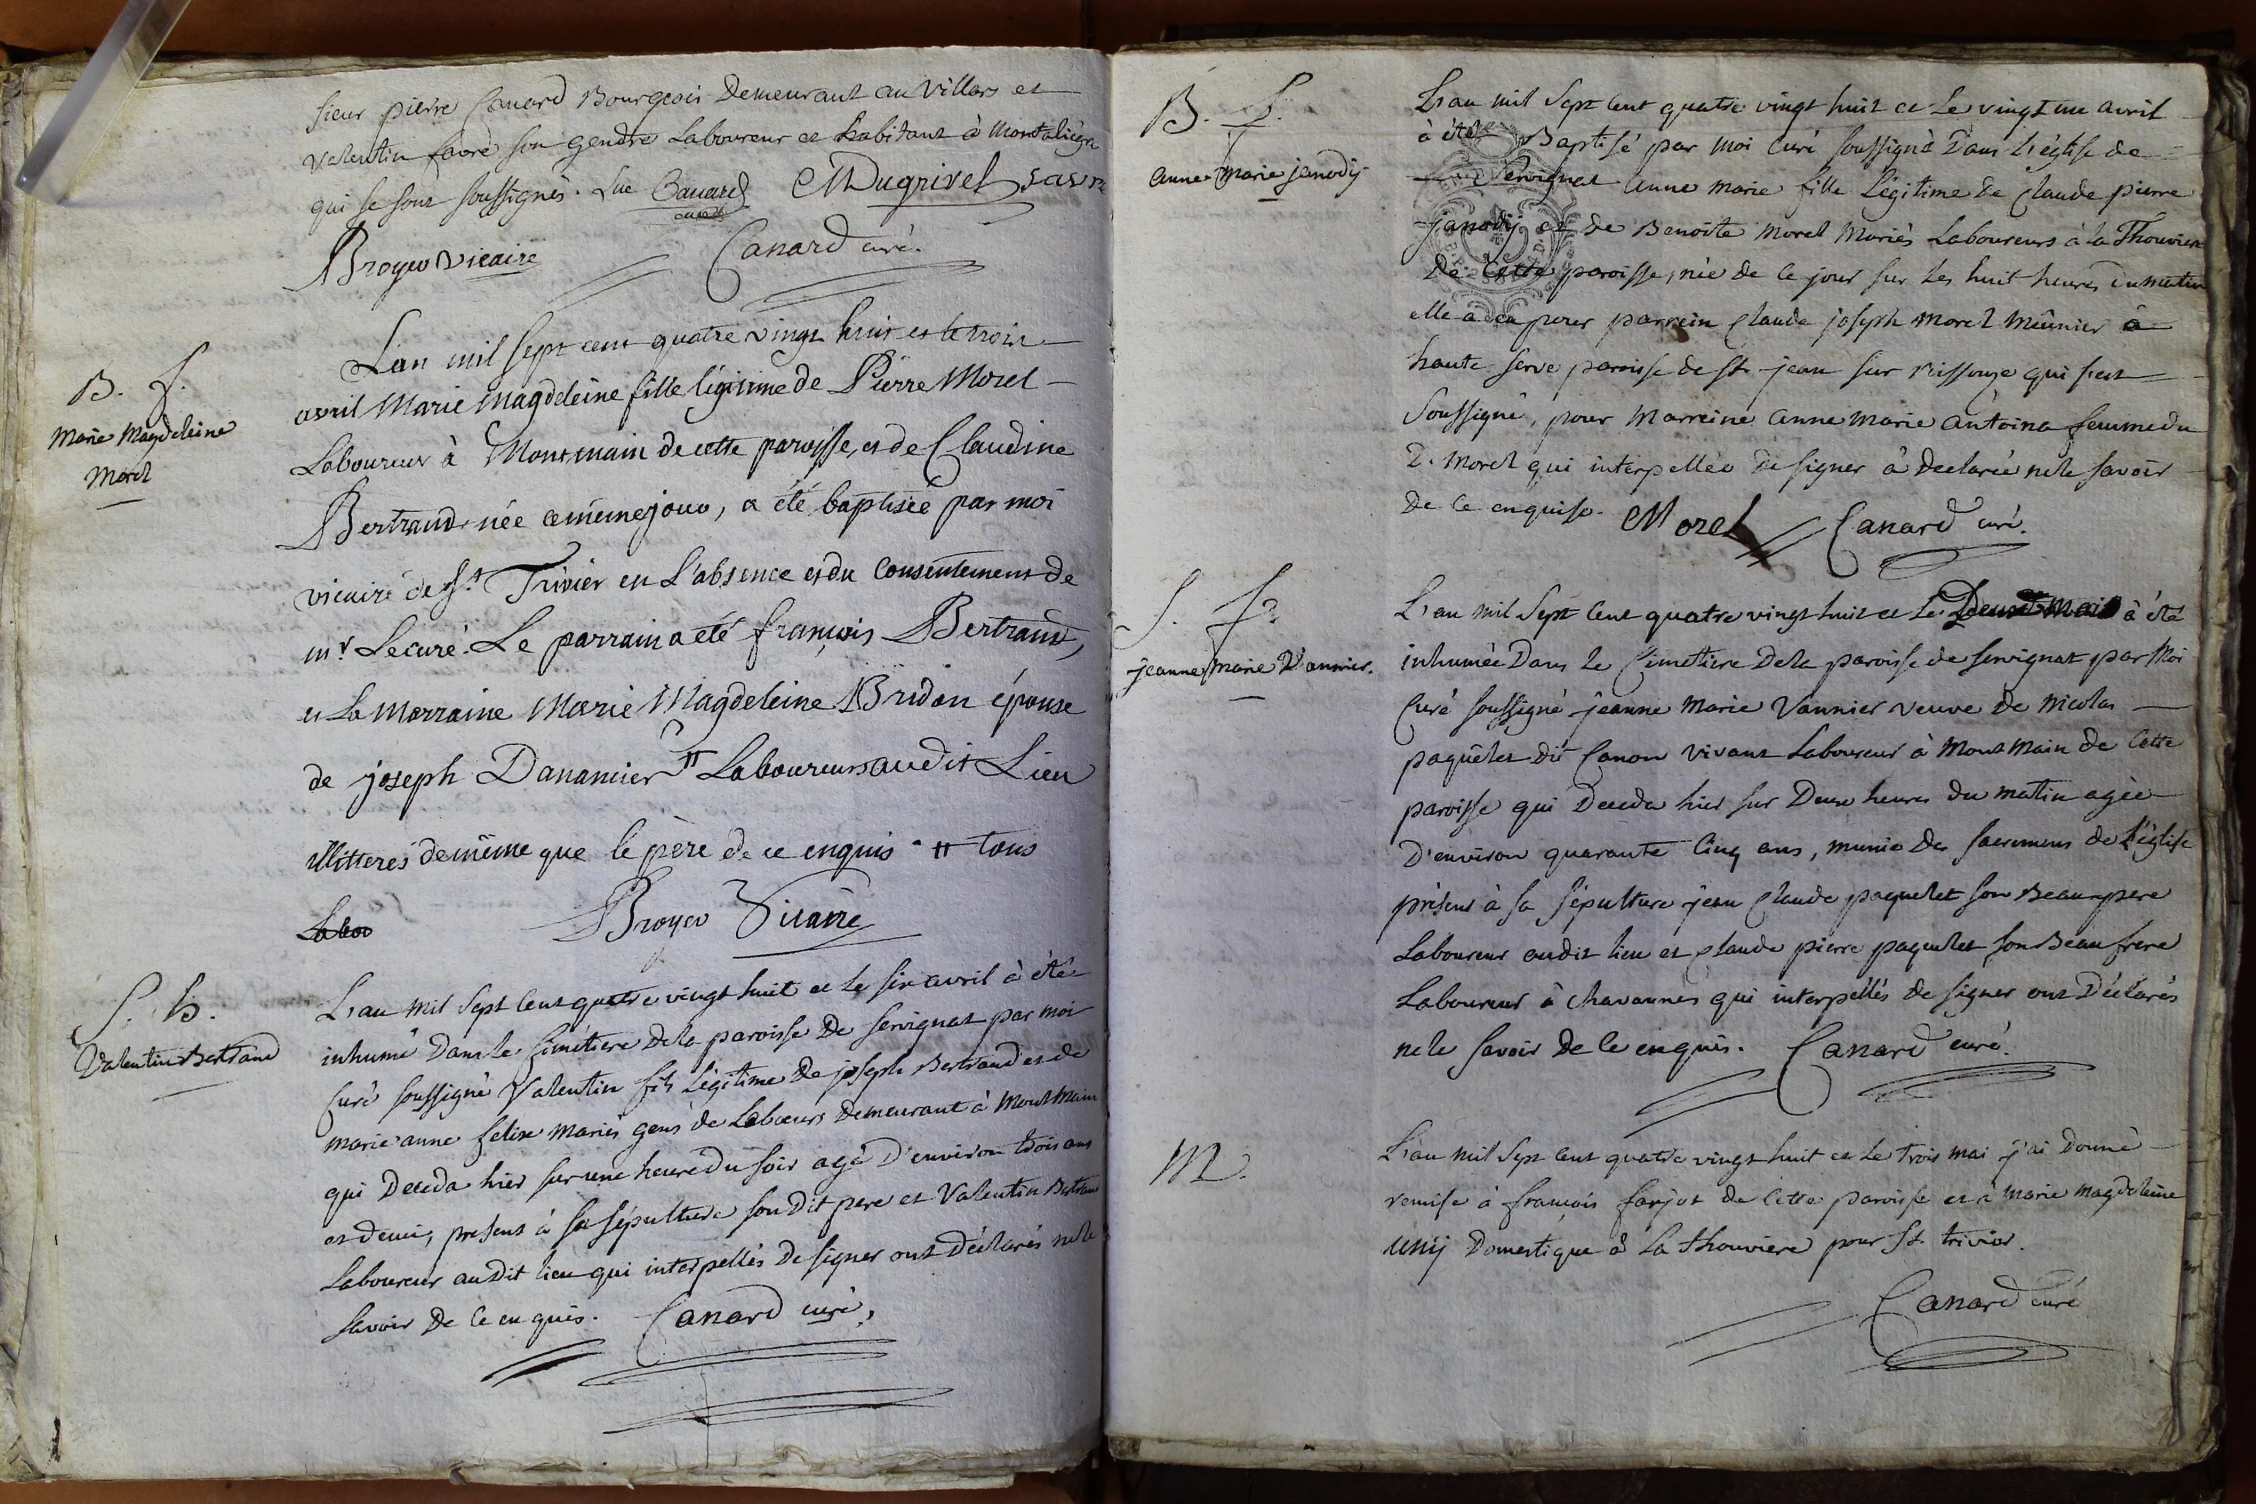 sieur pierre Canard Bourgeois Demeurant au Villars et
Valentin favre son gendre Laboureur et habitant à
qui se sont soussignés. Luc Canard MDugrivel favre
Broyer vicaire Canard curé.
B. f.
Marie Magdeleine
Morel
L'an mil sept cent quatre vingt huit et le trois
avril Marie Magdeleine fille légitime de Pierre Morel
Laboureur à Montmain de cette paroisse, et de Claudine
Bertrand née ce même jour, a été baptisée par moi
vicaire de St. Trivier en L'absence et du Consentement de
mr. Le curé. Le parrain a été françois Bertrand,
et La marraine Marie Magdeleine Bridon épouse
de joseph Danancier # Laboureurs audit Lieu
illitterés de même que le père de ce enquis. # tous
Labou
Broyer Vicaire
S. h.
Valentin Bertrand
L'an mil Sept Cent quatre vingt huit et le six avril à été
inhumé Dans le Cimetiere De la paroisse De Servignat par moi
Curé soussigné Valentin fils Légitime De joseph Bertrand et de
marie anne felix mariés gens de Labeurs Demeurant à Mont Main
qui Deceda hier sur une heure du soir agé D'environ trois ans
et demi, present à sa sépulture son Dit pere et Valentin Bertrand
Laboureur au Dit lieu qui interpellés De signer ont Déclarés ne le
savoir De Ce en quis. Canard curé.
B. f.
anne Marie janody
L'an mil Sept Cent quatre vingt huit et Le vingt un avril
à été Baptisé par Moi Curé soussigné Dans L'église de
Servignat anne marie fille Légitime De Claude pierre
janody et de Benoite Morel Mariés Laboureurs à la Thouviere
De Cette paroisse, née de Ce jour sur Les huit heures du matin
elle a eu pour parrein Claude joseph Morel Meûnier à
haute serve paroisse de St. jean sur reissouze qui s'est
Soussigné, pour Marreine anne Marie antoina femme du
D. Morel qui interpellée De signer à declarée ne le savoir
De Ce enquise. Morel Canard curé.
S. f.
jeanne Marie Vannier.
L'an mil Sept Cent quatre vingt huit et Le Deux Mai à été
inhumée Dans Le Cimetiere De la paroisse de Servignat par Moi
Curé soussigné jeanne Marie Vannier veuve De Nicolas
paquelet dit Canon vivant Laboureur à Mont Main De Cette
paroisse qui Deceda hier sur Deux heures du matin agée
D'environ quarante Cinq ans, munie Des sacremens de l'église
présens à sa sépulture jean Claude paquelet son Beau pere
Laboureur audit lieu et Claude pierre paquelet son Beau frere
Laboureur à Chavannes qui interpellés de signer ont Déclarés
ne le savoir De Ce enquis. Canard curé.
M.
L'an mil Sept Cent quatre vingt huit et Le trois mai j'ai Donné
remise à françois farjot de Cette paroisse et à Marie Magdeleine
Unij Domestique à La Thouviere pour St. trivier.
Canard curé